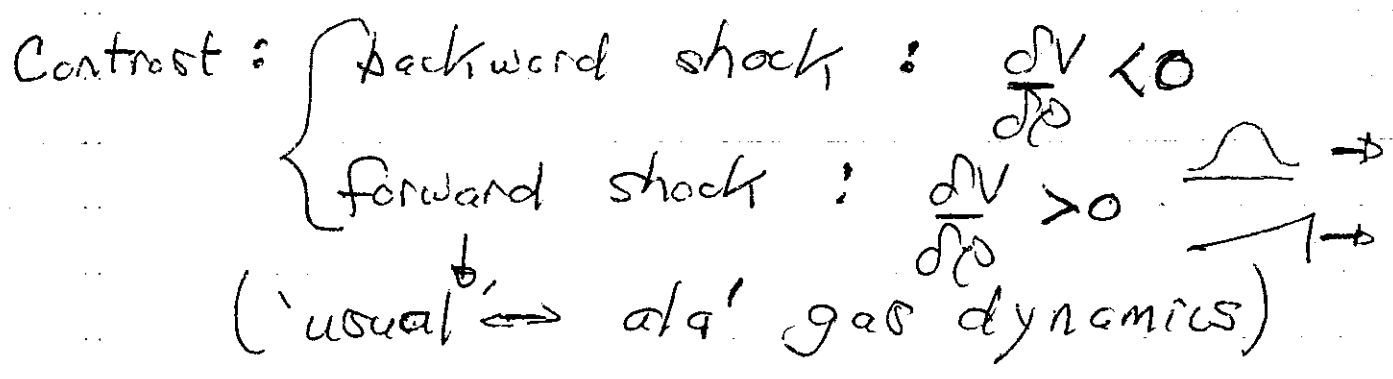 Contrast : { backward shock : δV/δρ < 0
forward shock : δV/δρ > 0
('usual' ↔ ala' gas dynamics)